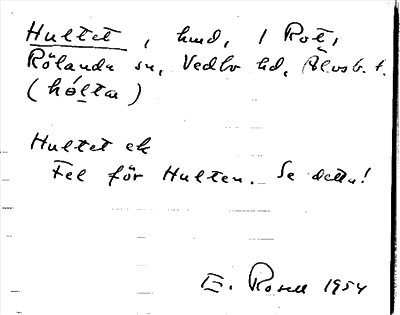 Hultet, hmd, 1 Rot,
Rölanda sn, Vedbo hd, Älvsb. l.
(hólta)
Hultet ek
Fel för Hulten. Se detta!
E. Rosell 1954